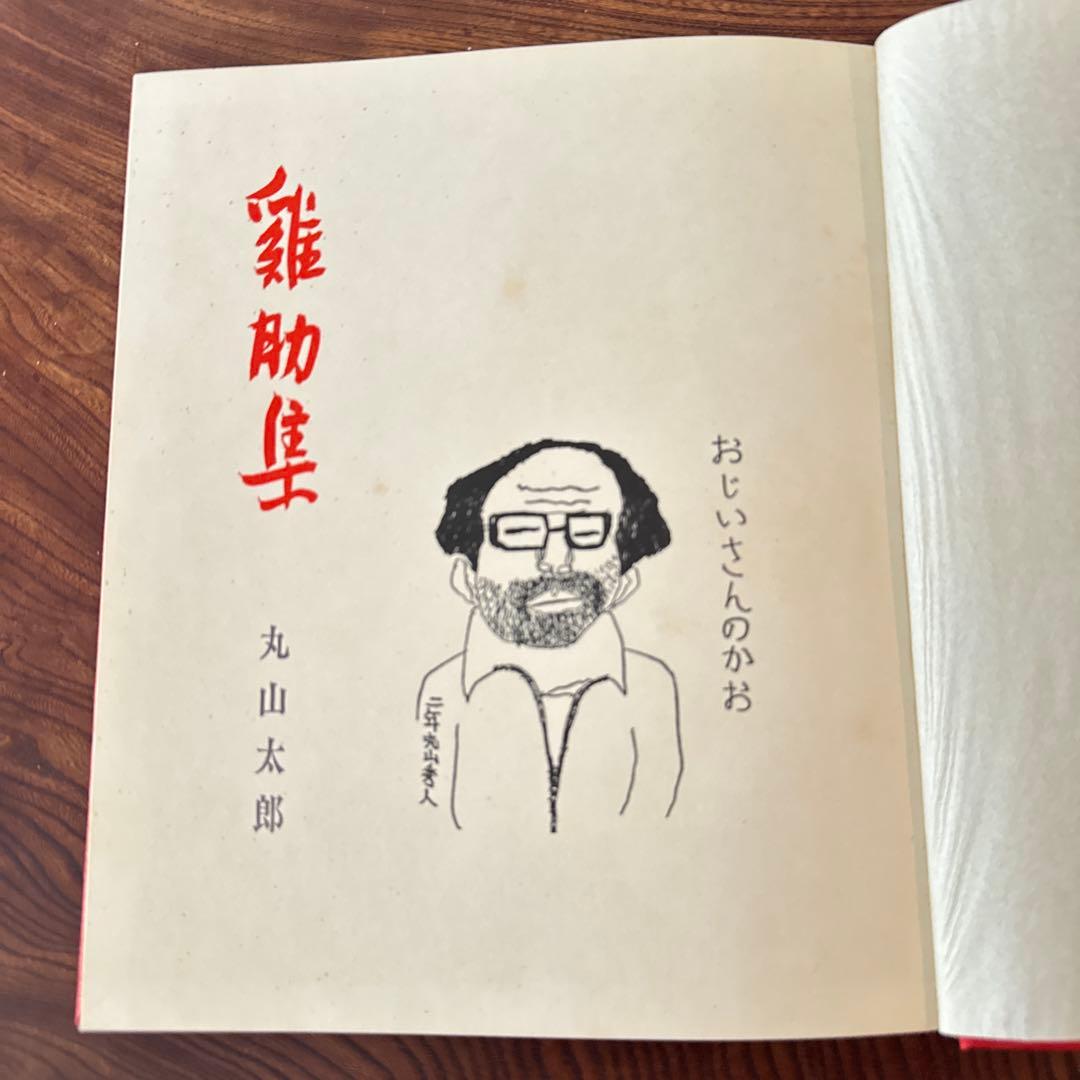 おじいさんのかお
二年丸山秀人
雞肋集
丸山太郎